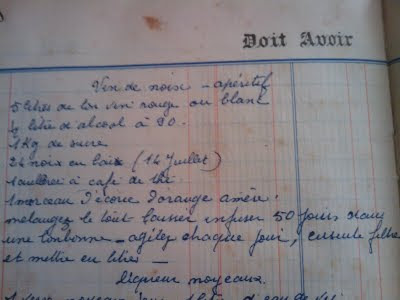 Doit Avoir
Vin de noix - apéritif
5 litres de bon vin rouge ou blanc
litre d'alcool à 90.
1 Kg de sucre
24 noix en (14 Juillet)
1 cuillerée à café de thé
1 morceau d'écorce d'orange amère.
mélangez le tout laisser infuser 50 jours dans
une bonbonne - agitez chaque jour, ensuite filtrer
et mettre en litres -
liqueur noyeaux.